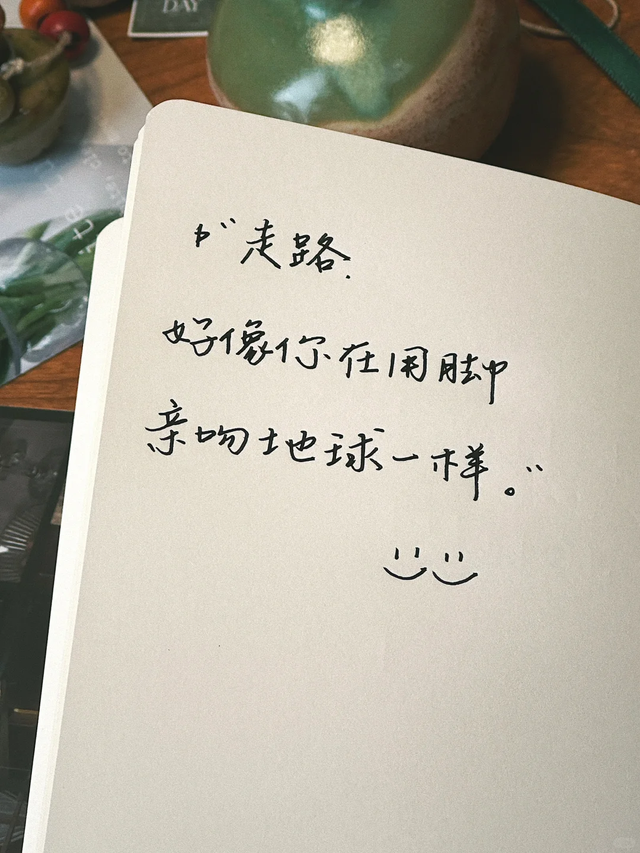 DAY
“走路.
好像你在用脚
亲吻地球一样。”